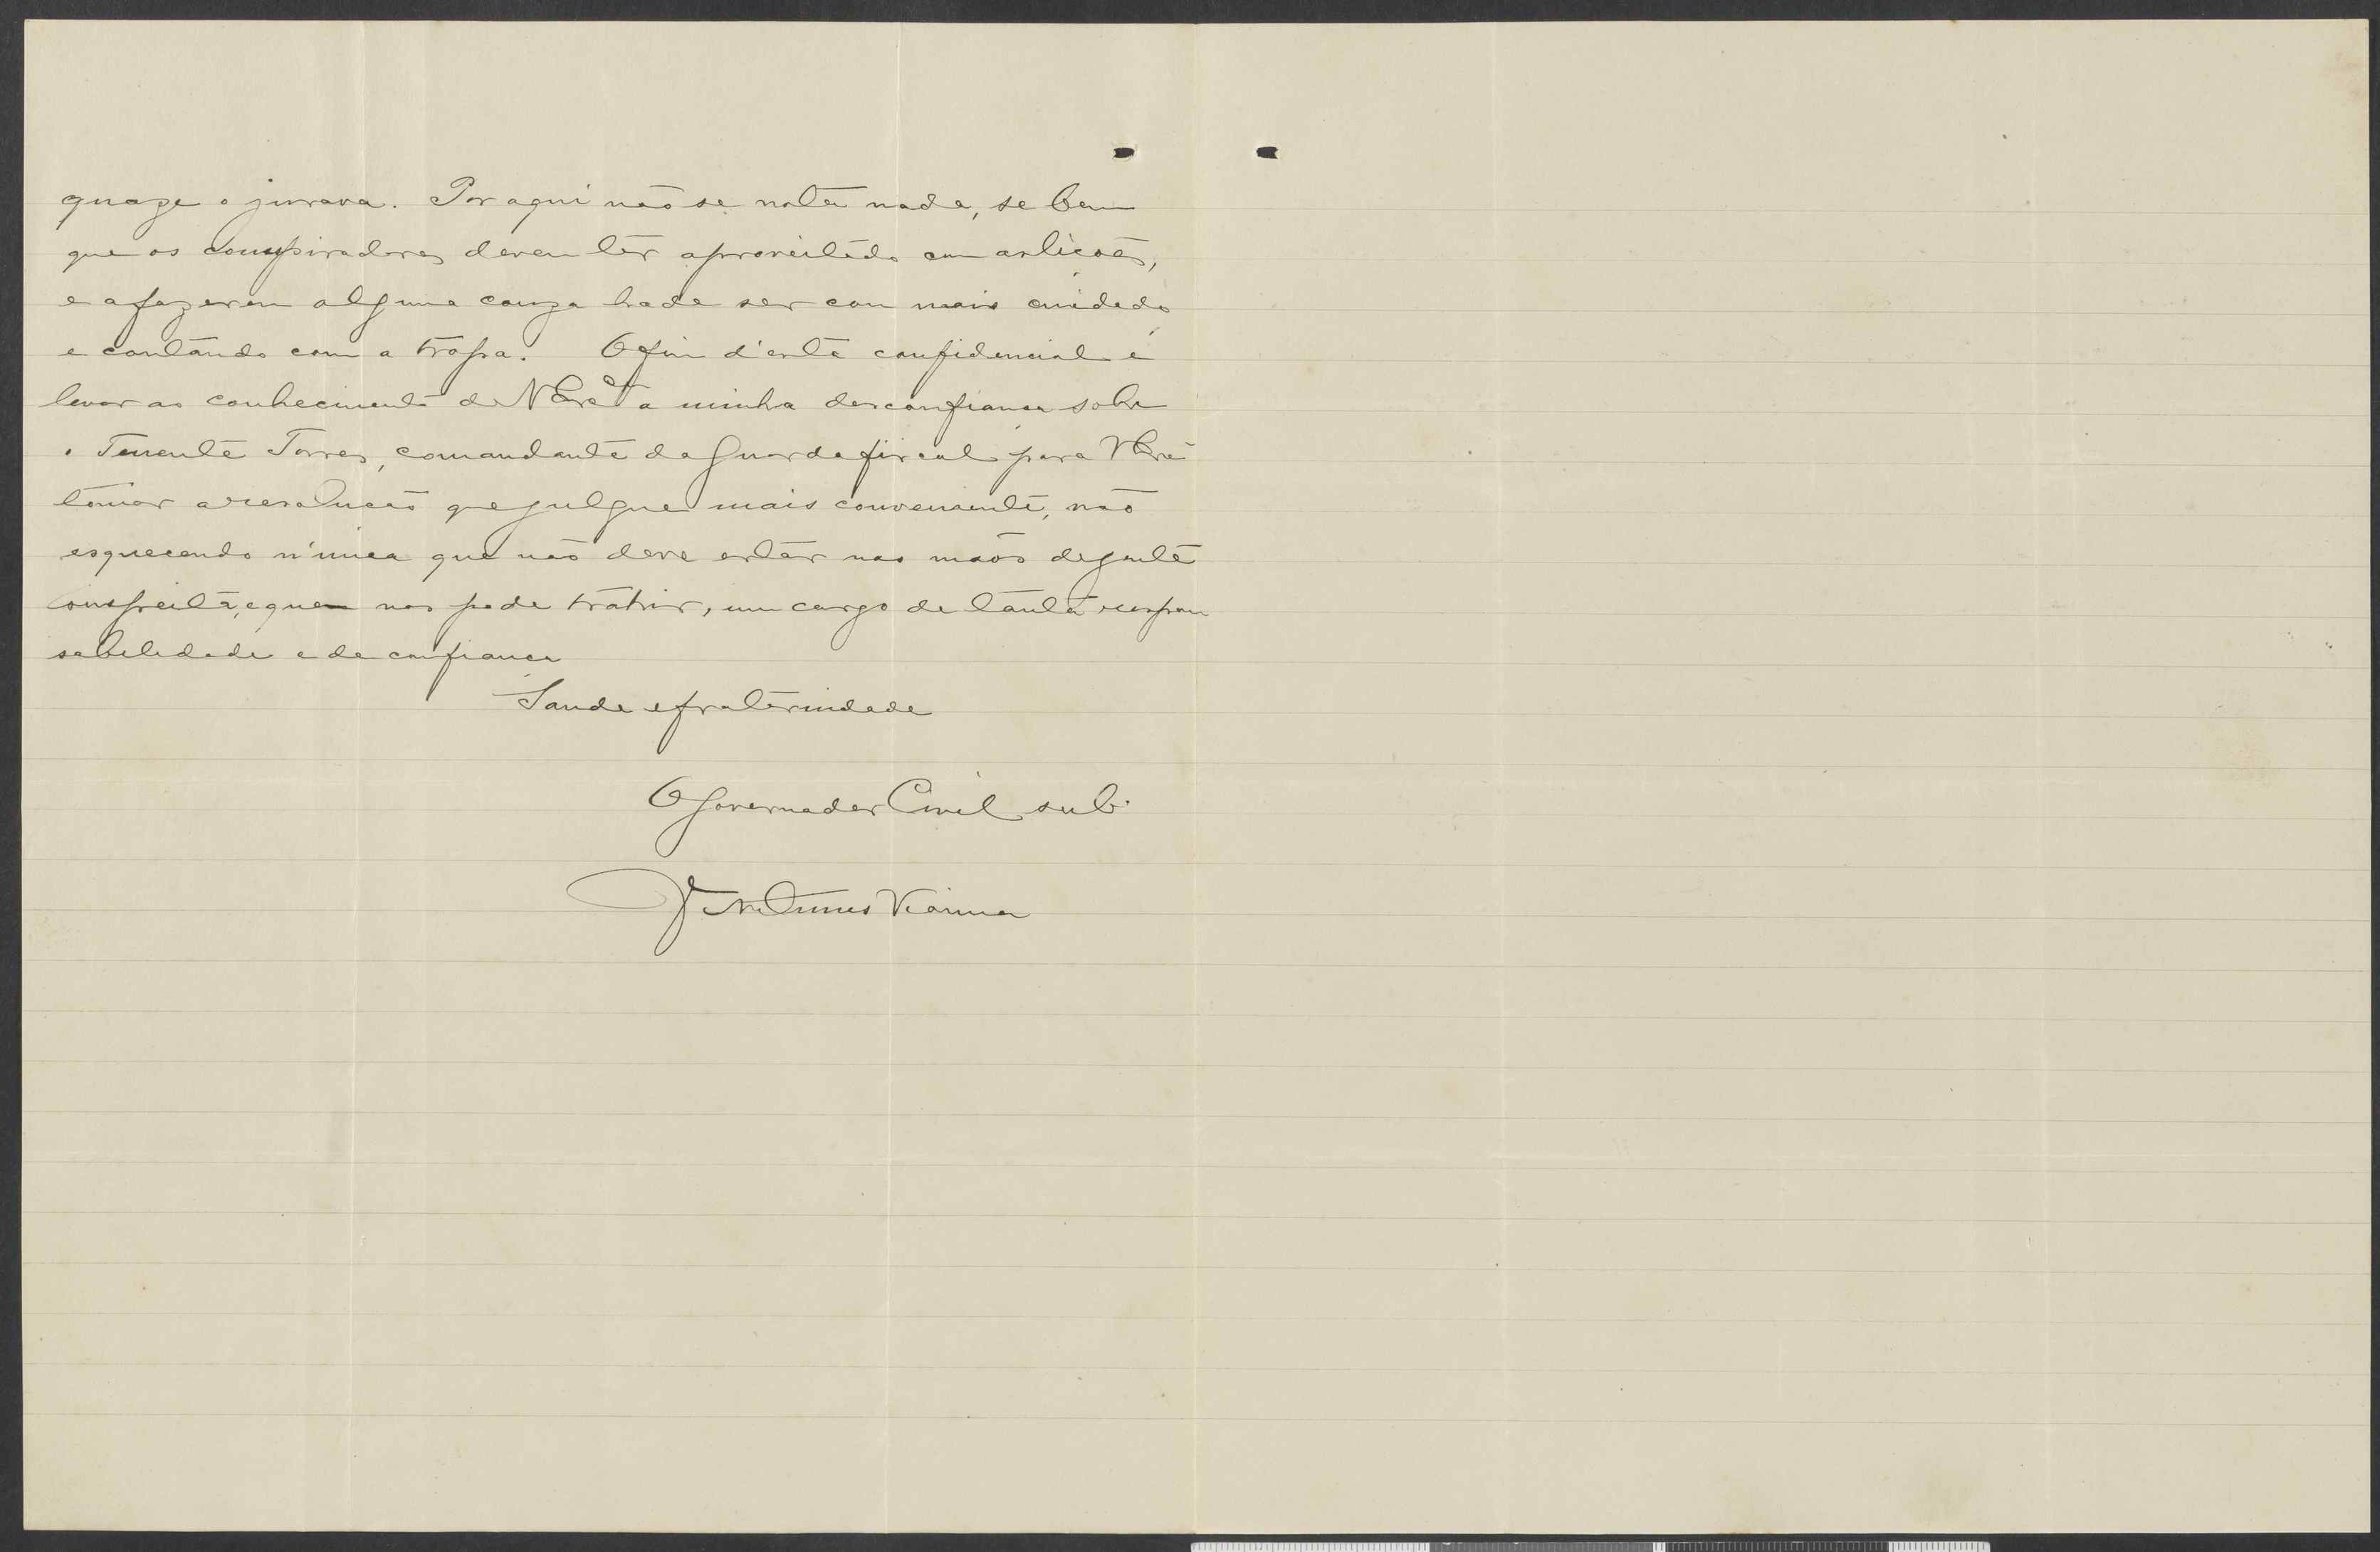 quaze o jurava. Por aqui não se nota nada, se bem
que os conspiradores devem ter aproveitado com as lições,
e a fazerem alguma couza hade ser com mais cuidado
e contando com a tropa. O fim d'esta confidencial é
levar ao conhecimento de V Exª a minha desconfiança sobre
o Tenente Torres, comandante da Guarda fiscal para V Exª
tomar a resolução que julgue mais conveniente, não
esquecendo n'unca que não deve estar nas mãos de gente
suspeita, e que nos pode trahir, um cargo de tanta respon
sabelidade e de confiança
Saude e fraternidade
O Governador Civil sub.
Nunes Vianna